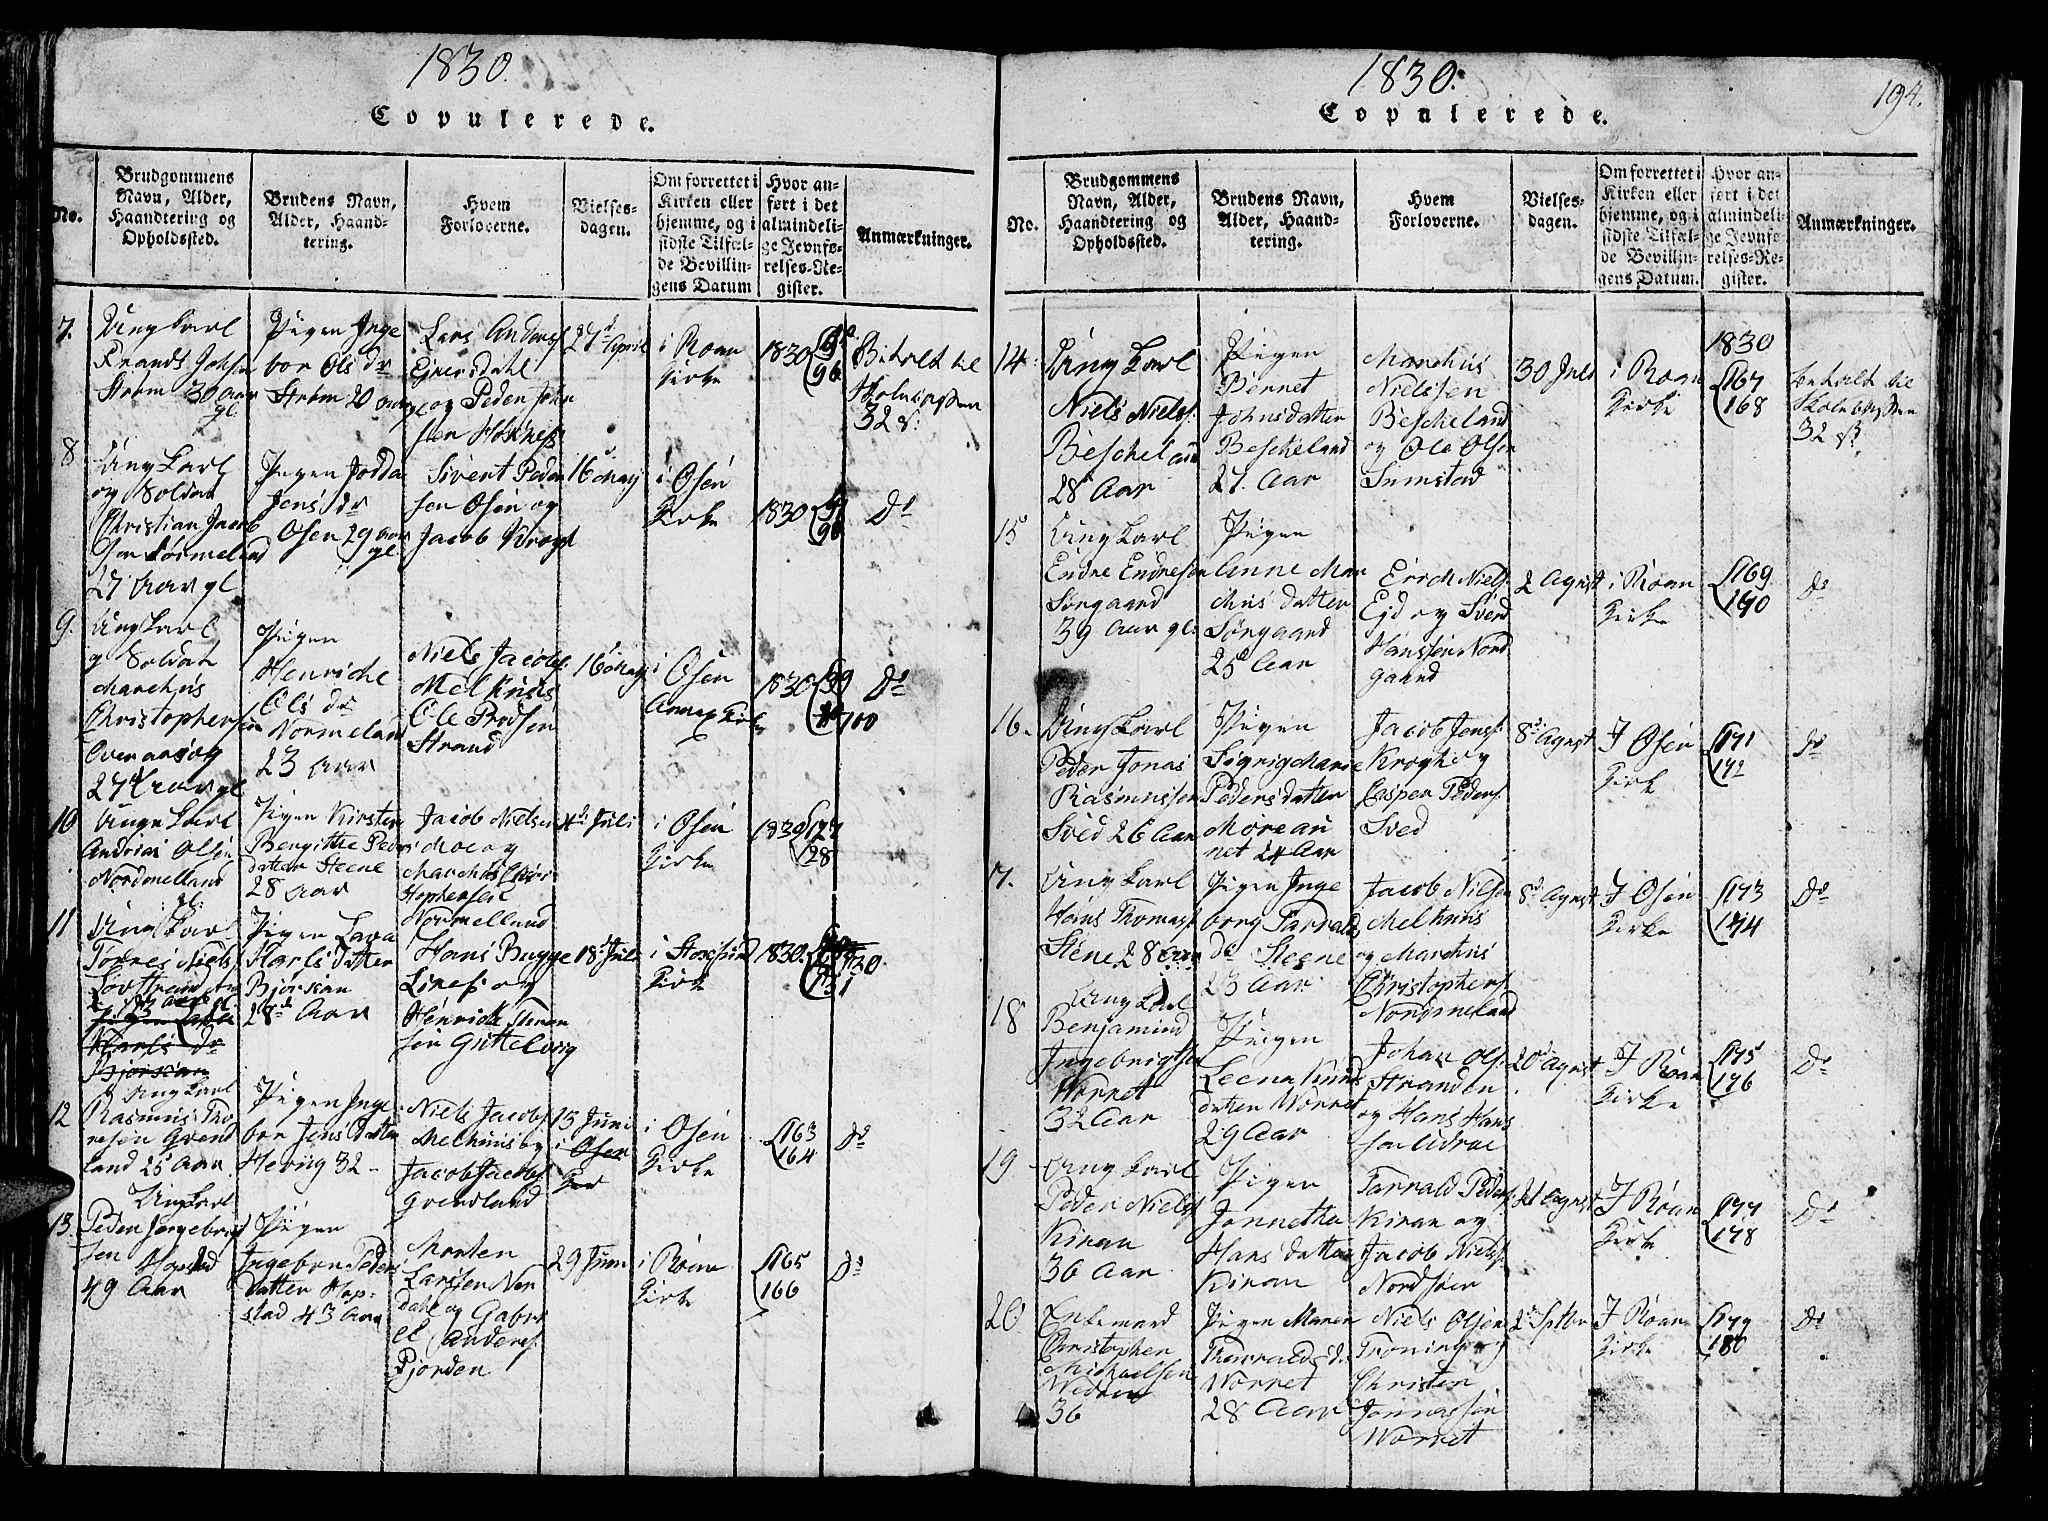 1830.
Copulerede.
No.
Brudgommens
Navn, Alder,
Haandtering og
Opholdssted.
Brudens Navn,
Alder, Haand-
tering.
Hvem
Forloverne.
Vielses-
dagen.
Om forrettet i
Kirken eller
hjemme, og i
sidste Tilfæl-
de Bevillin-
gens Datum
Hvor an-
ført i det
almindeli-
ge Jevnfø-
relses-Re-
gister.
Anmærkninger.
7.
Ungkarl
Johsen
Strøm 30 aar
gl.
Pigen Inge
bor Ols dr
Strøm 20 aar
gl
Lars Anders
og Peder John
sen
27d April
i Roan
Kirke
1830
96
Betalt til
32 s.
8
Ungkarl
og Soldat
Christian Jacob
sen
27 aar gl
Pigen
Jens dr
Osen 29 aar
gl
Sivert Peder
sen Osen og
Jacob Krogh
16 May
i Osen
Kirke
1830
98
Do
9.
Ungkarl
og Soldat
Marchus
Christophersen
27 aar gl
Pigen
Henriche
Ols dr
Normeland
23 aar
Niels Jacobs.
Melhuus
Ole
Strand
16 May
i Osen
Annex Kirke
1830
99
100
Do
10
Ungkarl
Andrias Olsen
Nordmelland
gl.
Pigen Kirsten
Bergitthe Peder
datter Steene
28 aar
Jacob Nielsen
Moe og
Marchus Chris
tophersen
Normelland
4d Juli
i Osen
Kirke
1830
127
28
11
Ungkarl
Niels
Pigen Lava
Karls datter
Bjørskan
28 Aar
Hans Bugge
og
Henrick
sen
18d Juli
i
Kirke
1830.
130.
131
Karls dr
Bjørskan
12
Ungkarl
Rasmus Tho
resen Grend
land 25 Aar
Pigen Inge
bor Jens Datter
32
Niels Jacobs.
Melhuus og
Jacob Jacobs
Grensland
13 Juni
i Osen
i Osen
Kirke
163
164
Do
13.
Ungkarl
Peder Ingebrigt
sen Hopstad
49 Aar
Pigen
Ingebor Peders
Datter Hop-
stad 43 Aar
Morten
Larssen Nor
dahl og Gabri
el Anders.
Fjorden
29 Juni
i Roan
Kirke
165
166
Do
1830.
194.
Copulerede.
No.
Brudgommens
Navn, Alder,
Haandtering og
Opholdssted.
Brudens Navn,
Alder, Haand-
tering.
Hvem
Forloverne.
Vielses-
dagen.
Om forrettet i
Kirken eller
hjemme, og i
sidste Tilfæl-
de Bevillin-
gens Datum.
Hvor an-
ført i det
almindeli-
ge Jevnfø-
relses-Re-
gister.
Anmærkninger.
14.
Ungkarl
Niels Niels.
Bescheland
28 Aar
Pigen
Bernet
Johnsdatter
Bescheland
27. Aar
Marchus
Nielssen
Bescheland
og Ole Olsen
Sumstad
30 Juli
i Roan
Kirke
1830
167
168
betalt til
Skolebøssen
32 s.
15
Ungkarl
Endre Endresen
Sørgaard
39 aar gl.
Pigen
Anne Mar
chus datter
Sørgaard
25 Aar
Erich Niels.
Eid og Sverd
Hanssen Nord
gaard
2 Agust
i Roan
Kirke
169
170
Do
16.
Ungkarl
Peder Jonas
Rasmussen
Sved 26 Aar
Pigen
Sigrig Marie
Peders datter
Moreau
net 24 Aar
Jacob Jens.
Krogh og
Casper Peders.
Sved
8d Agust
I Osen
Kirke
171
172
Do
7.
Ungkarl
Hans Thomas.
Stene 28 aar
Pigen Inge
borg Tardals
dr Steene
23 Aar
Jacob Nilsen
Melhuus
og Marchus
Christophers.
Nordmeland
8d Agust
I Osen
Kirke
173
174
Do
18
Ungkarl
Benjamind
Ingebrigtsen
Worret
32 Aar
Pigen
Leena Knud
datter Worret
29 Aar
Johan Ols.
Stranden
og Hans Hans
sen
20d Agust
I Roan
Kirke
175
176
Do
19
Ungkarl
Peder Niels
Kiran
36 Aar
Pigen
Jonnetha
Hans datter
Kiran
Tarrald Peders.
Kiran og
Jacob Niels.
21 Agust
I Roan
Kirke
177
178
Do
20
Enkemand
Christopher
Michaelsen
36
Pigen Maren
Tharralds d.
Worret
28 Aar
Niels Olsen
og
Christen
Jonnassen
Worret
2d Sptbr
I Roan
Kirke
179
180
Do